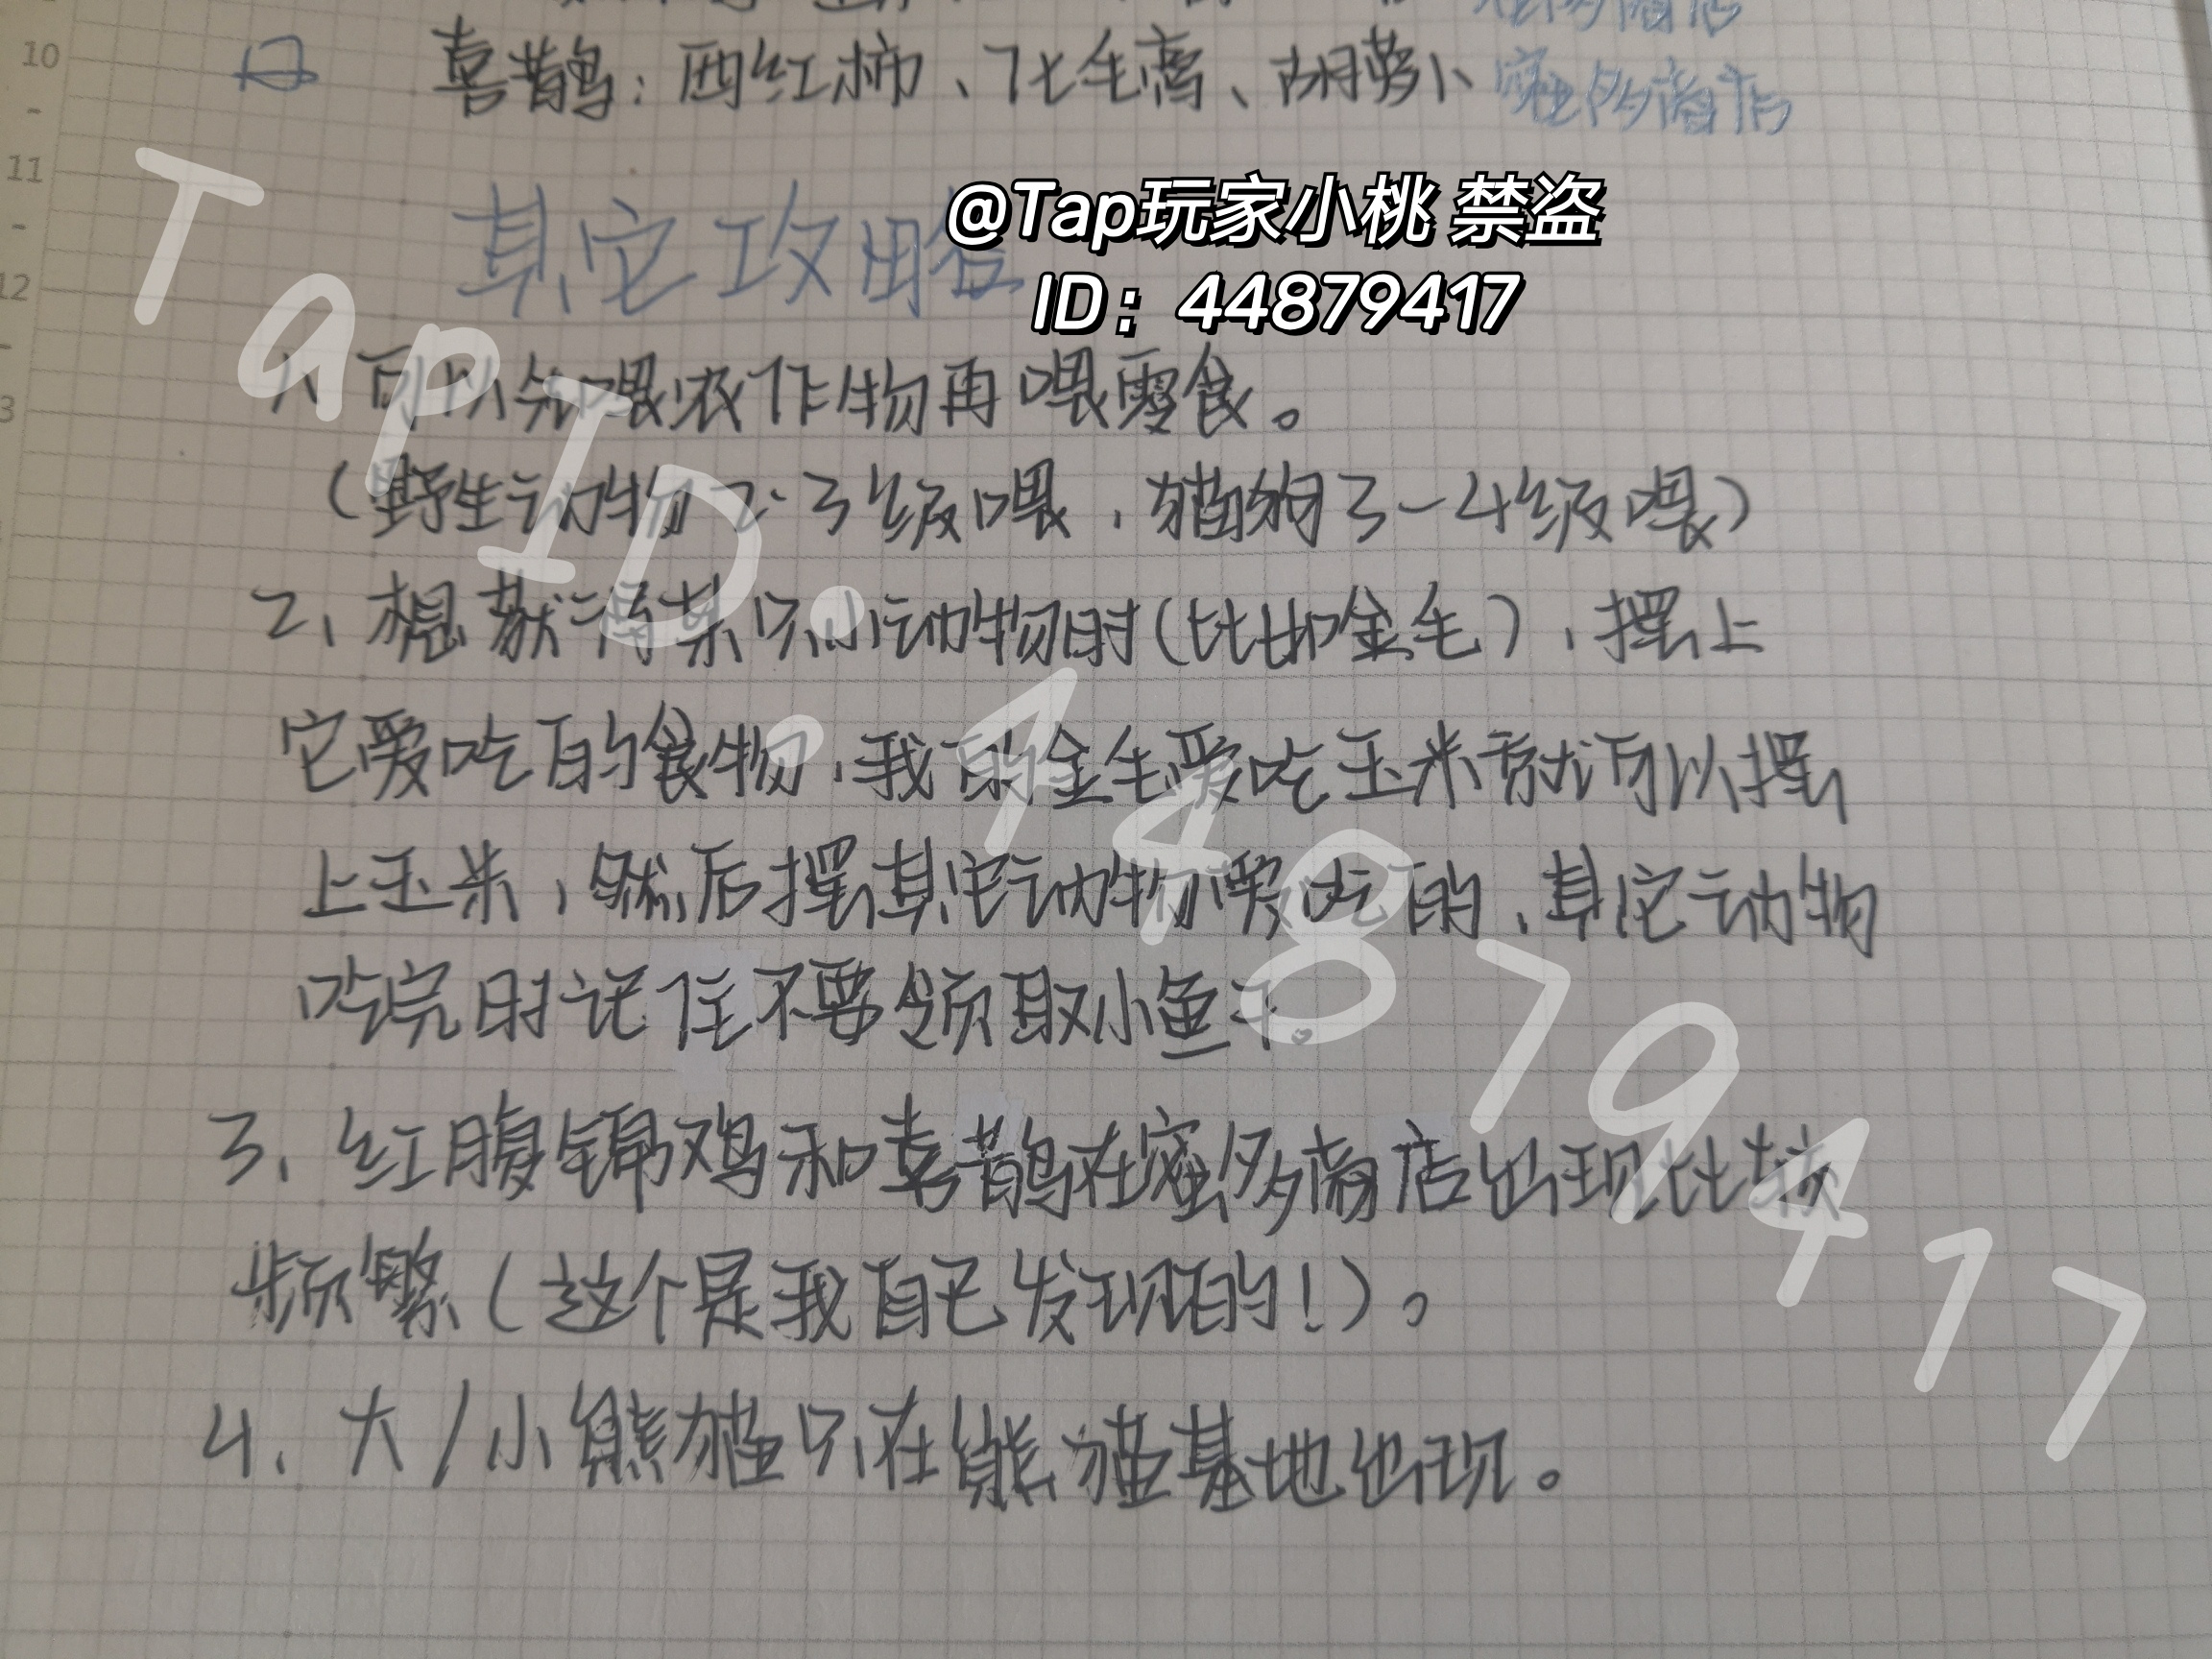 10
喜鹊：西红柿、花生嵩、胡萝卜 蜜多商店
11
@Tap玩家小桃 禁盗
其它攻略
ID：44879417
12
1、可以先喂农作物再喂零食。
3
（野生动物2-3级喂，猫狗3-4级喂）
2、想获得某只小动物时（比如金毛），摆上
它爱吃的食物，我的金毛爱吃玉米就可以摆
上玉米，然后摆其它动物爱吃的，其它动物
吃完时记住不要领取小鱼干。
3、红腹锦鸡和喜鹊在蜜多商店出现比较
频繁（这个是我自己发现的！）。
4、大/小熊猫只在熊猫基地出现。
TapID：44879417